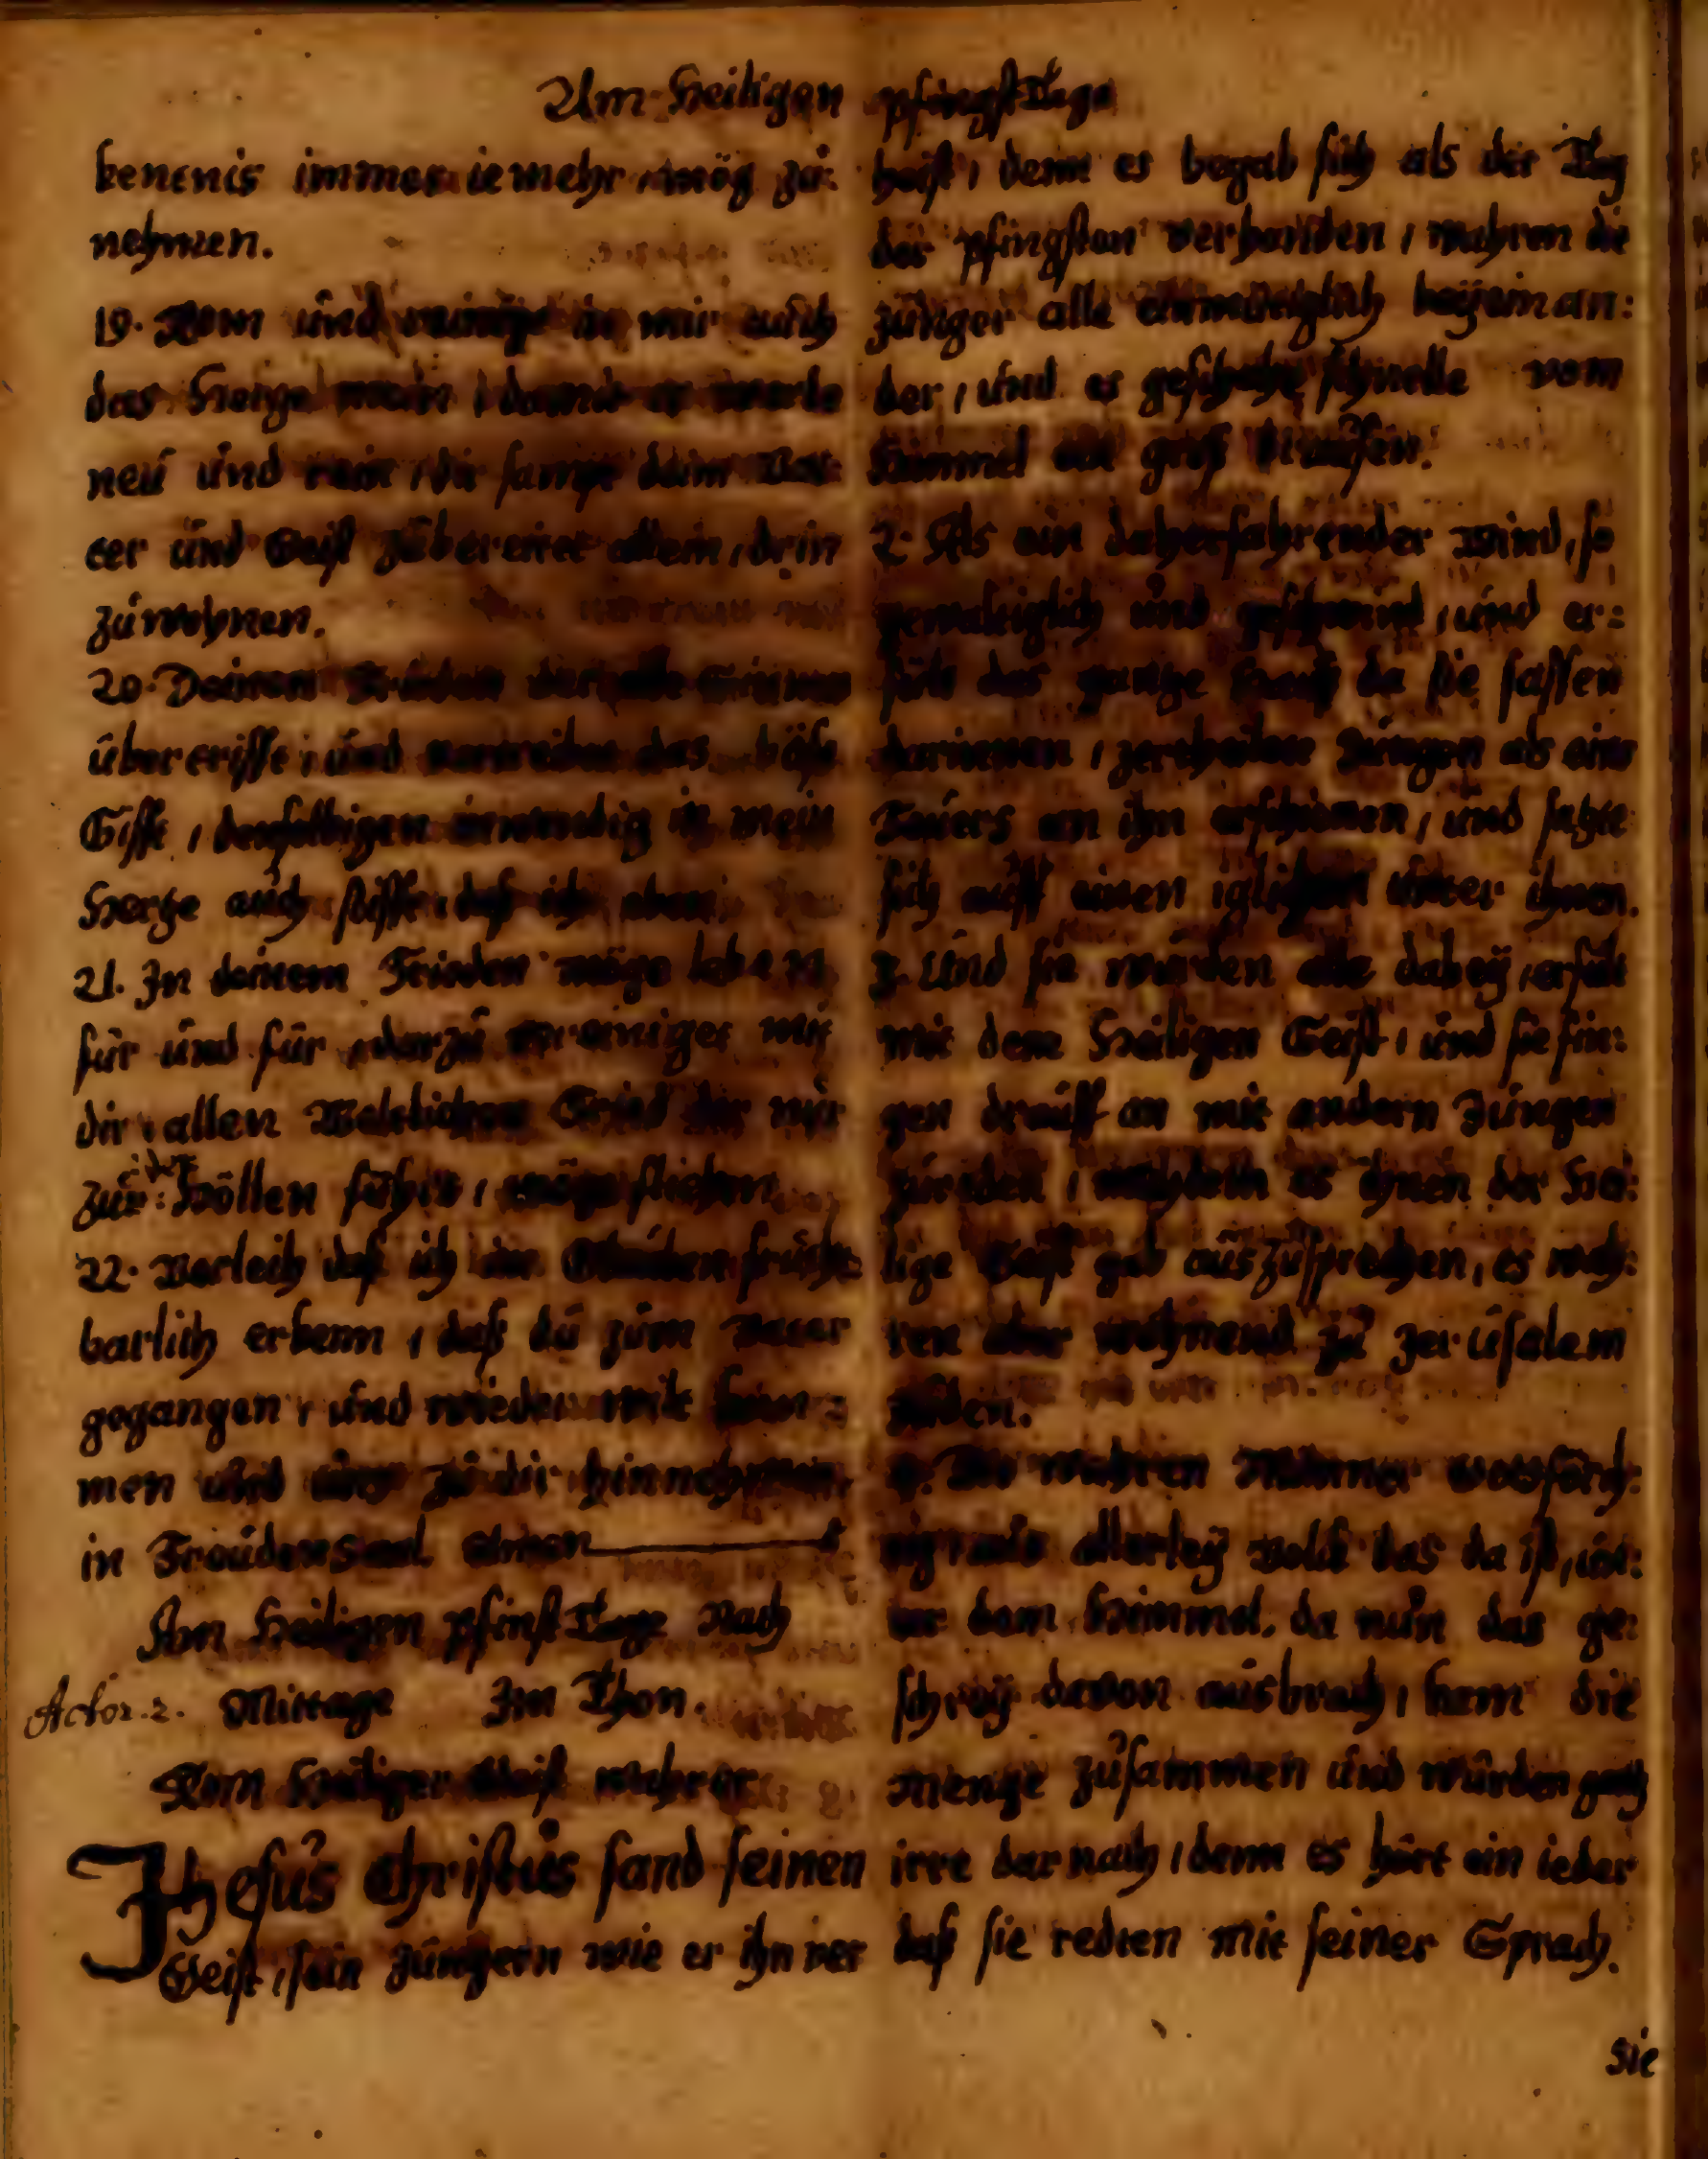 Am Heiligen pfingstTage
kentnis immer iemehr, mög zu:
nehmen.
19. Kom und reinige in mir auch
das Hertze mein, damit es werde
neu und rein, dir sampt deim Vat:
ter und Geist zubereitet allein, drin
zuwohnen.
20. Deinen Frieden der alle
übertrifft, und vertreibet das böse
Gifft, denselbigen inwendig in mein
Hertze auch stifft, daß ich eben
21. In deinem Frieden möge leben,
für und für, darzu vereiniget mit
dir, allen Weltlichen Fried der mir
zur Höllen führt, möge fliehen
22. Verleih daß ich im Glauben frücht
barlich erkenn, daß du zum Vater
gegangen, und wieder wilt kom:
men und uns zu dir hinnehmen,
in Freudensaal amen
Am Heiligen pfinstTage Nach
Actor. 2. Mittage Im Thon.
Kom Heiliger Geist wahrer
JHesus Christus sand seinen
Geist, sein Jüngern wie er ihn ver
heist, denn es begab sich als der Tag
der pfingsten verhanden, wahren die
Jünger alle einmütiglich beÿeinan:
der, und es geschahe schnelle vom
Himmel ein groß brausen.
2. Als ein daherfahrender Wind, so
gewaltiglich und geschwind, und er:
füllt das gantze Hauß da sie sassen
darinnen, zertheilete Zungen als eins
Feuers an ihn erschienen, und satzte
sich auff einen iglichen unter ihnen.
3. Und sie wurden alle dabeÿ, erfült
mit dem Heiligen Geist, und sie fin:
gen drauff an mit andern Zungen
zureden, nachdem es ihnen der Hei:
lige Geist gab auszusprechen, es wah:
ren aber wohnend zu Jerusalem
Juden.
4. Die wahren Männer Gottsfürch:
tig aus allerleÿ Volck das da ist, un:
ter dem Himmel, da nun das ge:
schreÿ davon ausbrach, kam die
Menge zusammen und wurden gantz
irre darnach, denn es hört ein ieder
daß sie redten mit seiner Sprach.
Sie